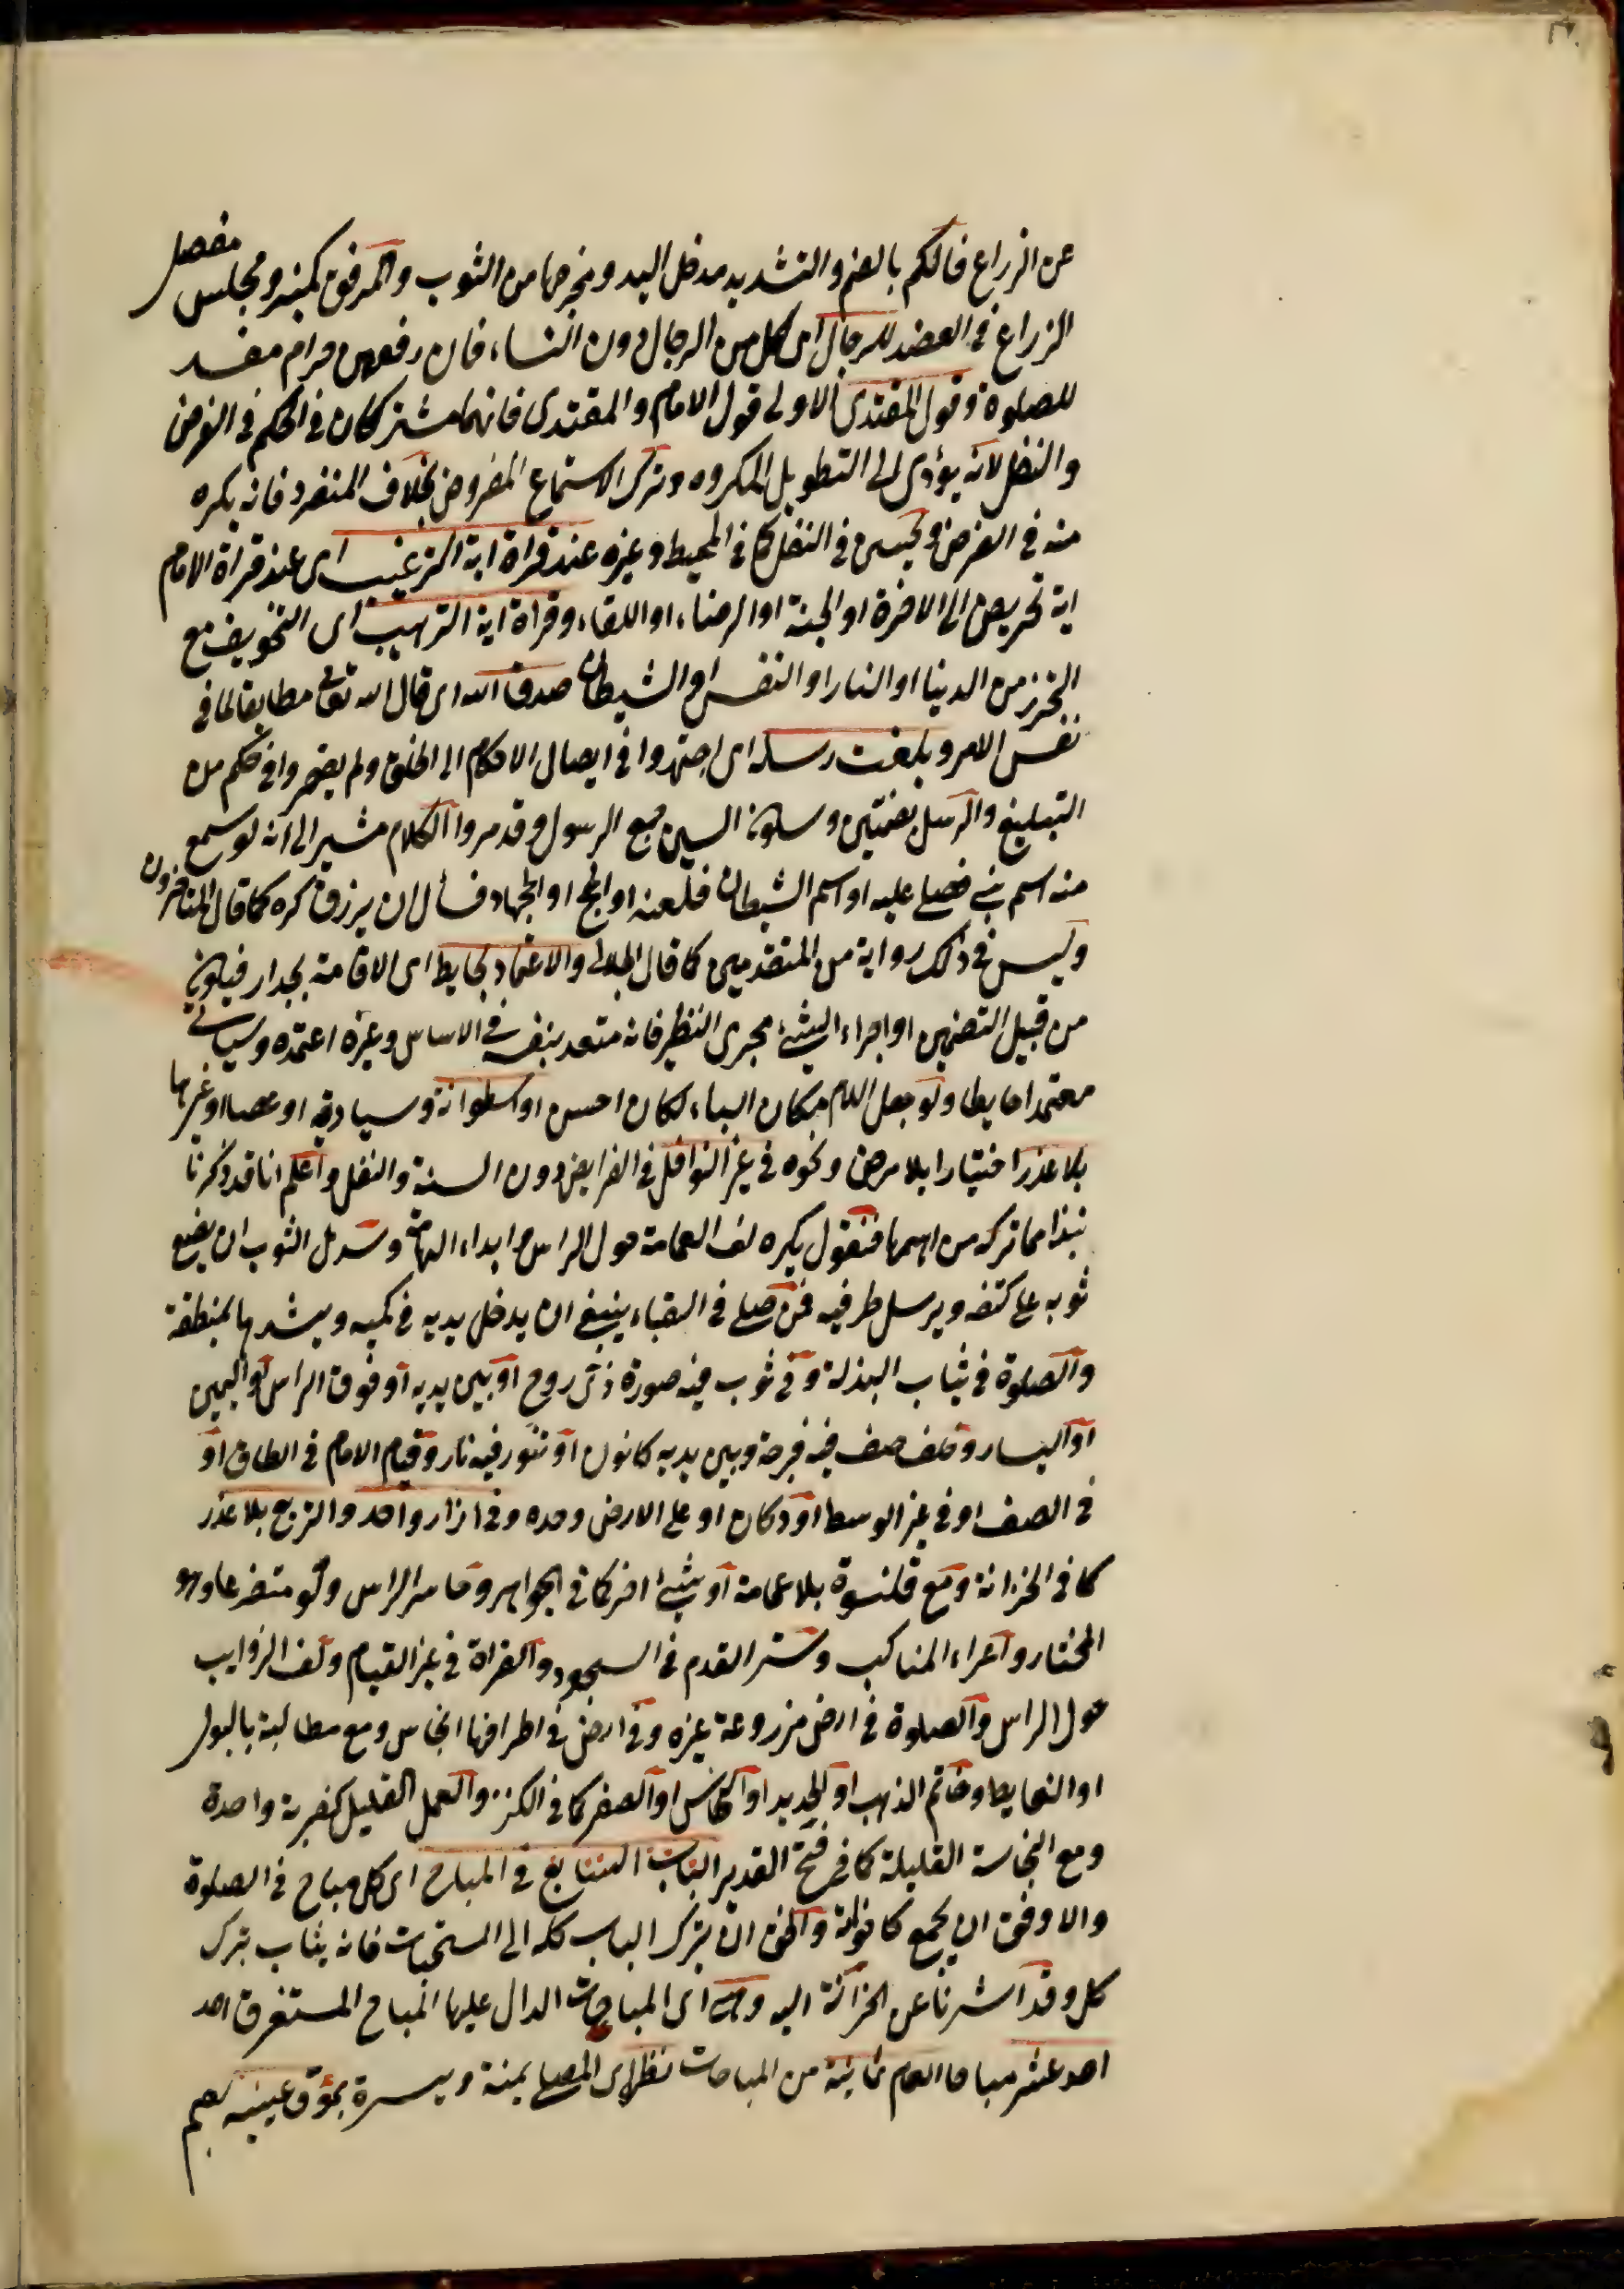 عن الذراع فالكم بالضم والتشديد مدخل اليد ومخرجها من الثوب والمرفق كمنبر ومجلس مفصل
الذراع في العضد للرجال اى كل من الرجال دون النساء فان رفعهن حرام مفسد
للصلوة وقول المقتدى الاولى قول الامام والمقتدى فانهما مشتركان في الحكم في الفرض
والنفل لانه يؤدى الى التطويل المكروه وترك الاستماع المفروض بخلاف المنفرد فانه يكره
منه في الفرض ويحسن في النفل كما في المحيط وغيره عند قراة اية الترغيب اى عند قراة الامام
اية تحريص الى الاخرة او الجنة او الرضاء او اللقاء وقراة اية الترهيب اى التخويف مع
التحرز من الدنيا او النار او النفس او الشيطان صدق الله اى قال الله تعالى مطابقا لما في
نفس الامر وبلغت رسله اى اجتهدوا في ايصال الاحكام الى الخلق ولم يقصروا في حكم من
التبليغ والرسل بضمتين وسكون السين جمع الرسول وقد مروا الكلام مشير الى انه لو سمع
منه اسم نبي فصلى عليه او اسم الشيطان فلعنه او الحج او الجهاد فسأل ان يرزق كره كما قال المتاخرون
وليس في ذلك رواية من المتقدمين كما قال الجلالى والاعتماد بحايط اى الاقامة بجدار فيكون
من قبيل التضمين او اجراء الشئ مجرى النظير فانه متعد بنفسه في الاساس وغيره اعتمده وسياتى
معتمدا حايطا ولو جعل اللام مكان الباء لكان احسن او اسطوانة وسيادية او عصا او غيرها
بلا عذر اختيارا بلا مرض ونحوه في غير النوافل في الفرايض دون السنة والنفل واعلم انا قد ذكرنا
نبذا مما تركه من اهمها فنقول يكره لف العمامة حول الراس وابداء الهامة وسدل الثوب ان يضع
ثوبه على كتفه ويرسل طرفيه فمن صلى في القباء ينبغي ان يدخل يديه في كميه ويشدها بمنطقة
والصلوة في ثياب البذلة وفي ثوب فيه صورة ذى روح او بين يديه او فوق الراس او اليمين
او اليسار وخلف صف فيه فرجة وبين يديه كانون او تنور فيه نار وقيام الامام في الطاق او
في الصف او في غير الوسط او دكان او على الارض وحده وفي ازار واحد والتربع بلا عذر
كما في الخزانة ومع قلنسوة بلا عمامة او شئ اخر كما في الجواهر وحاسر الراس ولو متضرعا وهو
المختار واعراء المناكب وستر القدم في السجود والقراة في غير القيام ولف الذوايب
حول الراس والصلوة في ارض مزروعة غيره وفي ارض في اطرافها انجاس ومع مطالبة بالبول
او الغايط وخاتم الذهب او الحديد او النحاس او الصفر كما في الكنز والعمل القليل كضربة واحدة
ومع النجاسة القليلة كما في فتح القدير الباب السابع في المباح اى كل مباح في الصلوة
والاوفق ان يجمع كاخواته والحق ان يترك الباب كله الى المستحبات فانه يثاب بترك
كل وقد اشرنا عن الخزانة اليه وهى اى المباحات الدال عليها المباح المستغرق احد
احد عشر مباحا العام ثمانية من المباحات نظر اى المصلى يمنة ويسرة بمؤق عينيه بضم